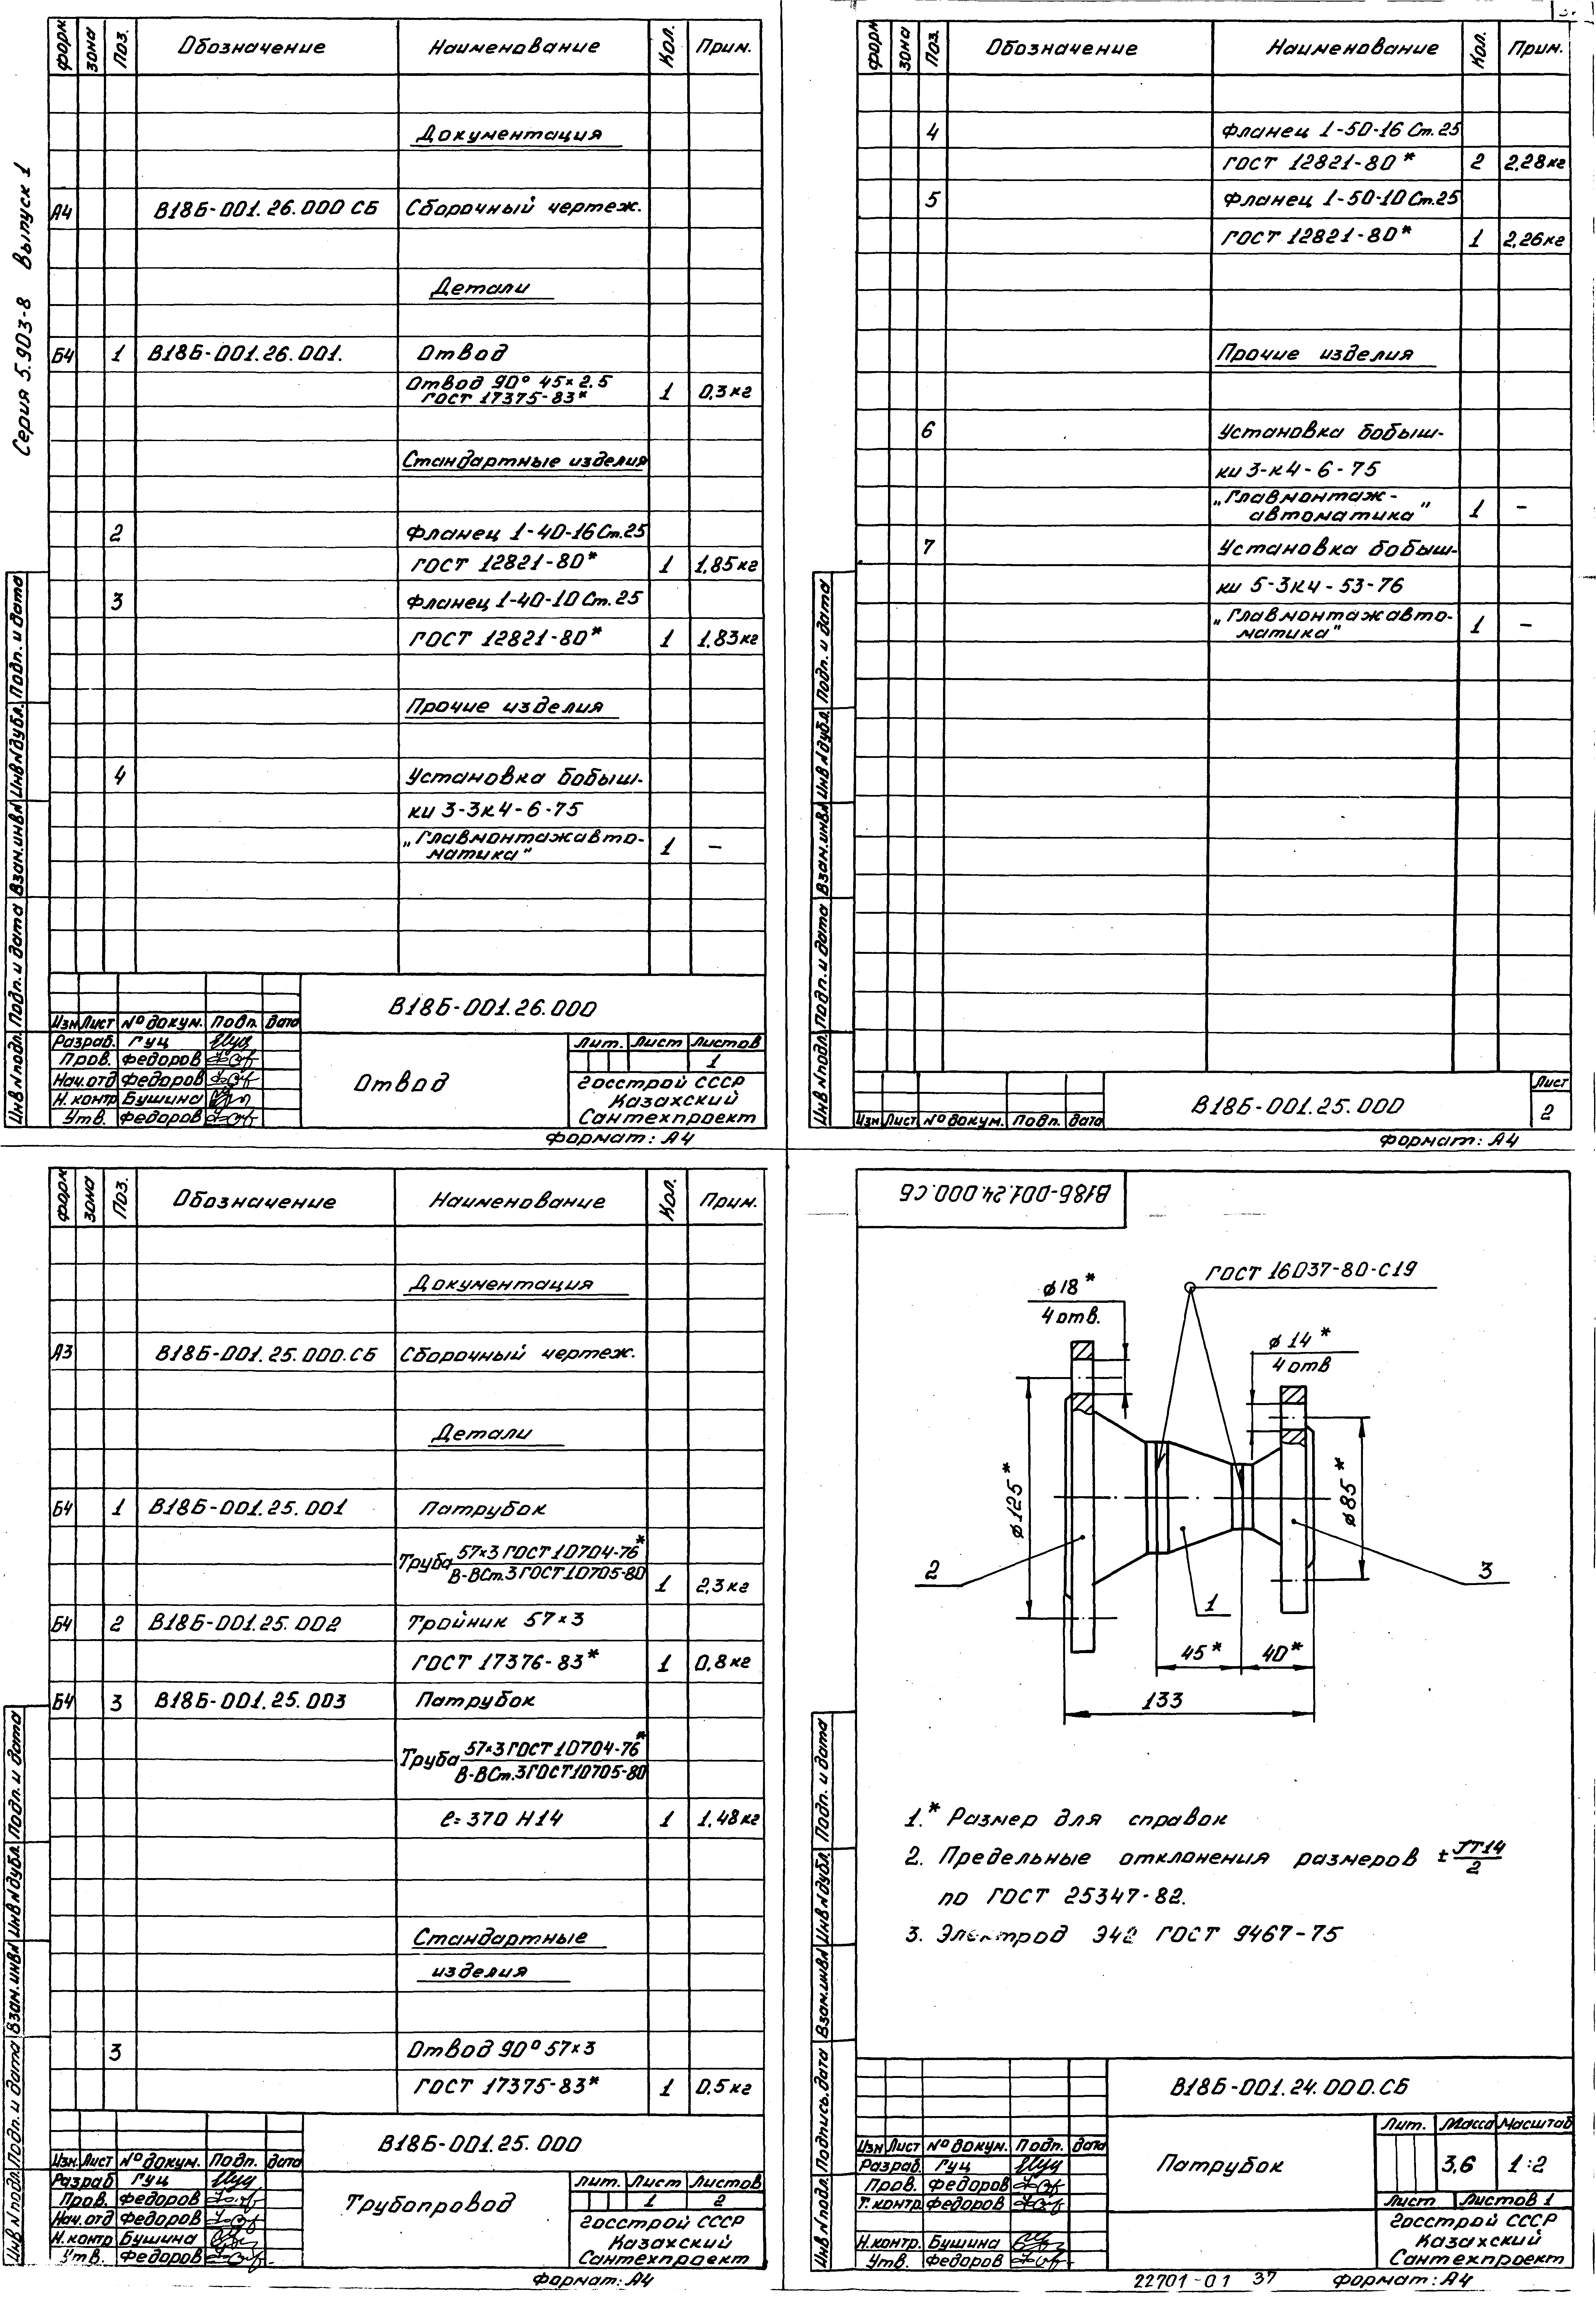 Серия 5.903-8 Выпуск 1
форм зона Поз. Обозначение Наименование Кол. Прим.
Документация
А4 В18Б-001.26.000 СБ Сборочный чертеж.
Детали
Б4 1 В18Б-001.26.001. Отвод
Отвод 90° 45×2.5
ГОСТ 17375-83* 1 0,3кг
Стандартные изделия
2 Фланец 1-40-16 Ст.25
ГОСТ 12821-80* 1 1,85кг
3 Фланец 1-40-10 Ст.25
ГОСТ 12821-80* 1 1,83кг
Прочие изделия
4 Установка бобыш-
ки 3-3К4-6-75
„Главмонтажавто-
матика" 1 —
Инв№подл. Подп. и дата Взам.инв№ Инв№дубл. Подп. и дата
В18Б-001.26.000
Изм Лист №докум. Подп. дата
Разраб. Гуц
Пров. Федоров
Нач.отд Федоров
Н.контр Бушина
Утв. Федоров
Отвод
Лит. Лист Листов
1
Госстрой СССР
Казахский
Сантехпроект
Формат: А4
форм зона Поз. Обозначение Наименование Кол. Прим.
4 Фланец 1-50-16 Ст.25
ГОСТ 12821-80* 2 2,28кг
5 Фланец 1-50-10 Ст.25
ГОСТ 12821-80* 1 2,26кг
Прочие изделия
6 Установка бобыш-
ки 3-К4-6-75
„Главмонтаж-
автоматика" 1 —
7 Установка бобыш-
ки 5-3К4-53-76
„Главмонтажавто-
матика" 1 —
Инв№подл. Подп. и дата Взам.инв№ Инв№дубл. Подп. и дата
Изм Лист №докум. Подп. дата
В18Б-001.25.000
Лист
2
Формат: А4
форм зона Поз. Обозначение Наименование Кол. Прим.
Документация
А3 В18Б-001.25.000.СБ Сборочный чертеж.
Детали
Б4 1 В18Б-001.25.001 Патрубок
Труба 57×3 ГОСТ 10704-76*
В-ВСт.3 ГОСТ 10705-80 1 2,3кг
Б4 2 В18Б-001.25.002 Тройник 57×3
ГОСТ 17376-83* 1 0,8кг
Б4 3 В18Б-001.25.003 Патрубок
Труба 57×3 ГОСТ 10704-76*
В-ВСт.3 ГОСТ 10705-80
ℓ=370 Н14 1 1,48кг
Стандартные
изделия
3 Отвод 90° 57×3
ГОСТ 17375-83* 1 0,5кг
Инв№подл. Подп. и дата Взам.инв№ Инв№дубл. Подп. и дата
В18Б-001.25.000
Изм. Лист №докум. Подп. дата
Разраб Гуц
Пров. Федоров
Нач.отд Федоров
Н.контр Бушина
Утв. Федоров
Трубопровод
Лит. Лист Листов
1 2
Госстрой СССР
Казахский
Сантехпроект
Формат: А4
В18Б-001.24.000.СБ
ГОСТ 16037-80-С19
ø18*
4 отв.
ø14*
4 отв
ø125*
ø85*
2
1
3
45*
40*
133
1.* Размер для справок
2. Предельные отклонения размеров ± JT14/2
по ГОСТ 25347-82.
3. Электрод Э42 ГОСТ 9467-75
Инв№подл. Подпись.дата Взам.инв№ Инв№дубл. Подп. и дата
В18Б-001.24.000.СБ
Изм Лист №докум. Подп. дата
Разраб. Гуц
Пров. Федоров
Т.контр. Федоров
Н.контр. Бушина
Утв. Федоров
Патрубок
Лит. Масса Масштаб
3,6 1:2
Лист Листов 1
Госстрой СССР
Казахский
Сантехпроект
22701-01 37 Формат: А4